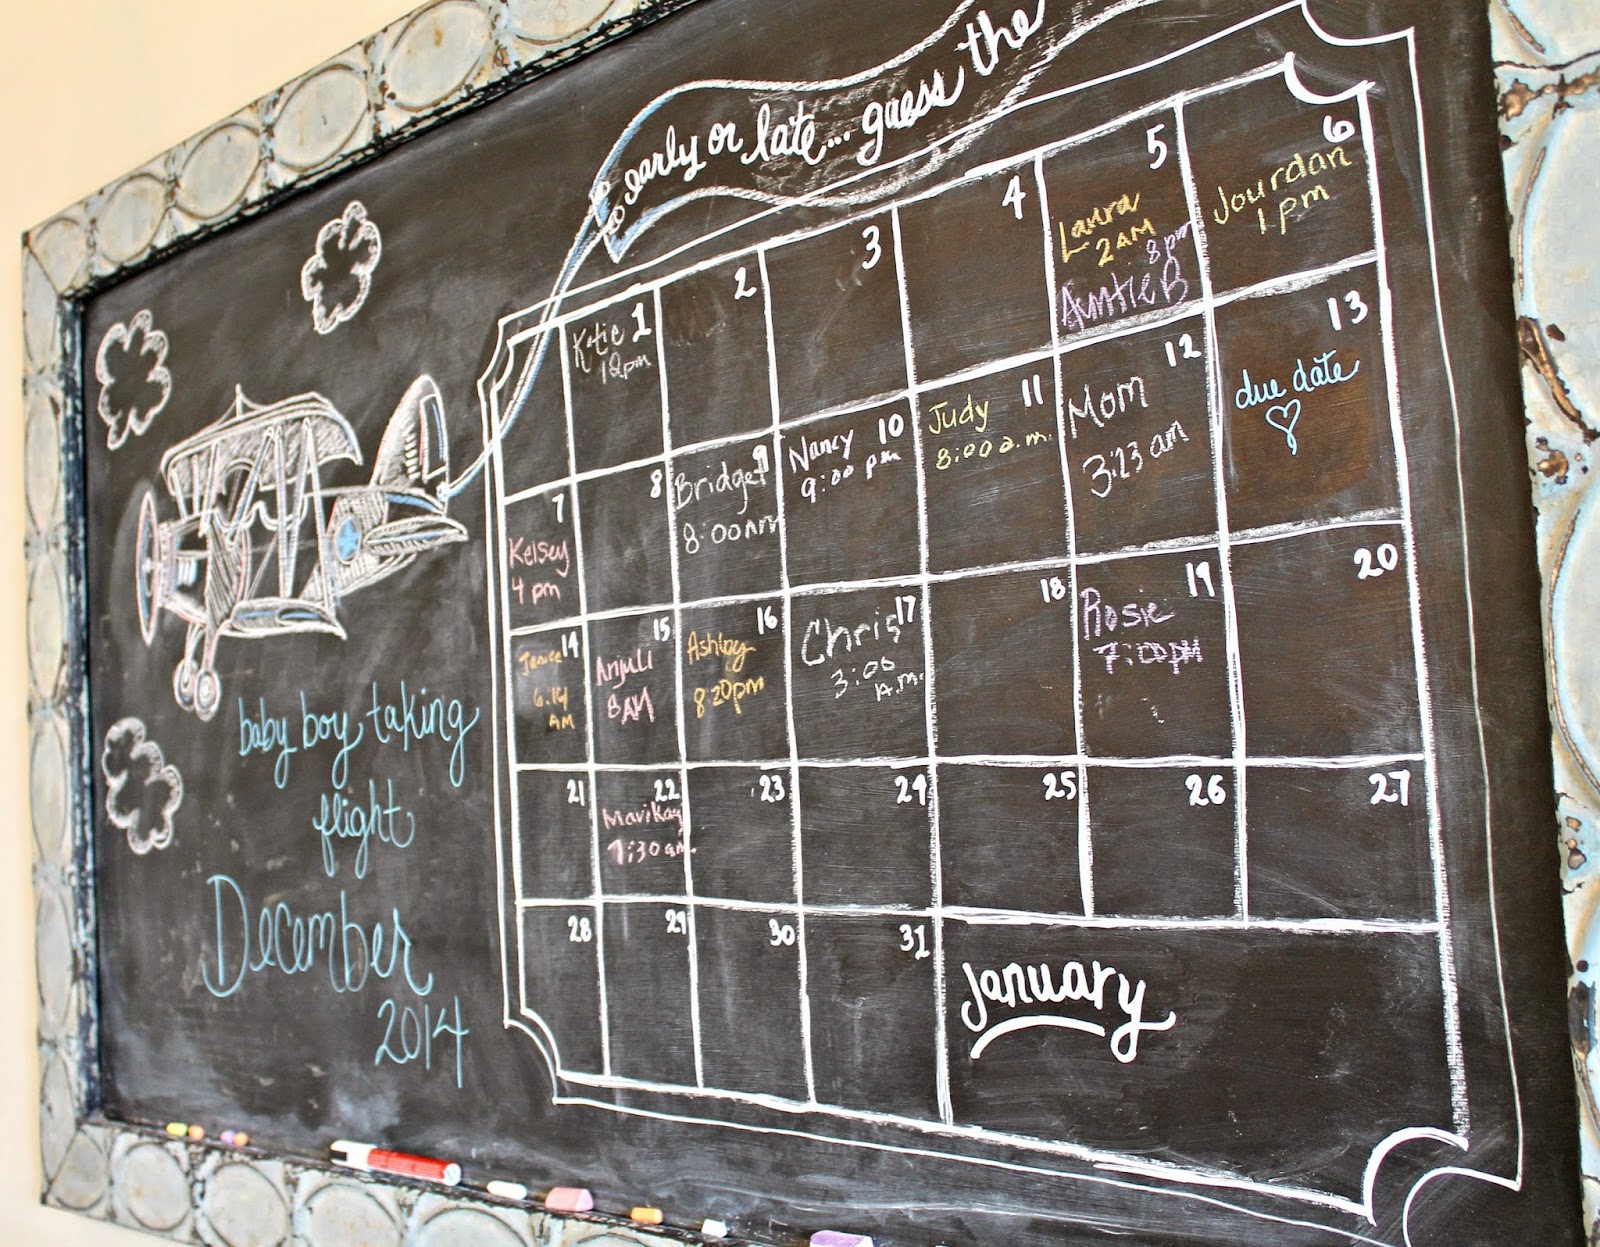 early or late... guess the
1
Katie
12pm
2
3
4
5
Laura
2AM
8pm
Auntie B
6
Jourdan
1pm
7
Kelsey
4 pm
8
9
Bridget
8:00AM
10
Nancy
9:00 pm
11
Judy
8:00 a.m.
12
Mom
3:23 am
13
due date
14
Janice
6:14
AM
15
Anjuli
8AM
16
Ashby
8:20pm
17
Chris
3:00
A.M.
18
19
Rosie
7:00PM
20
21
22
MariKay
7:30am
23
24
25
26
27
28
29
30
31
January
baby boy taking
flight
December
2014